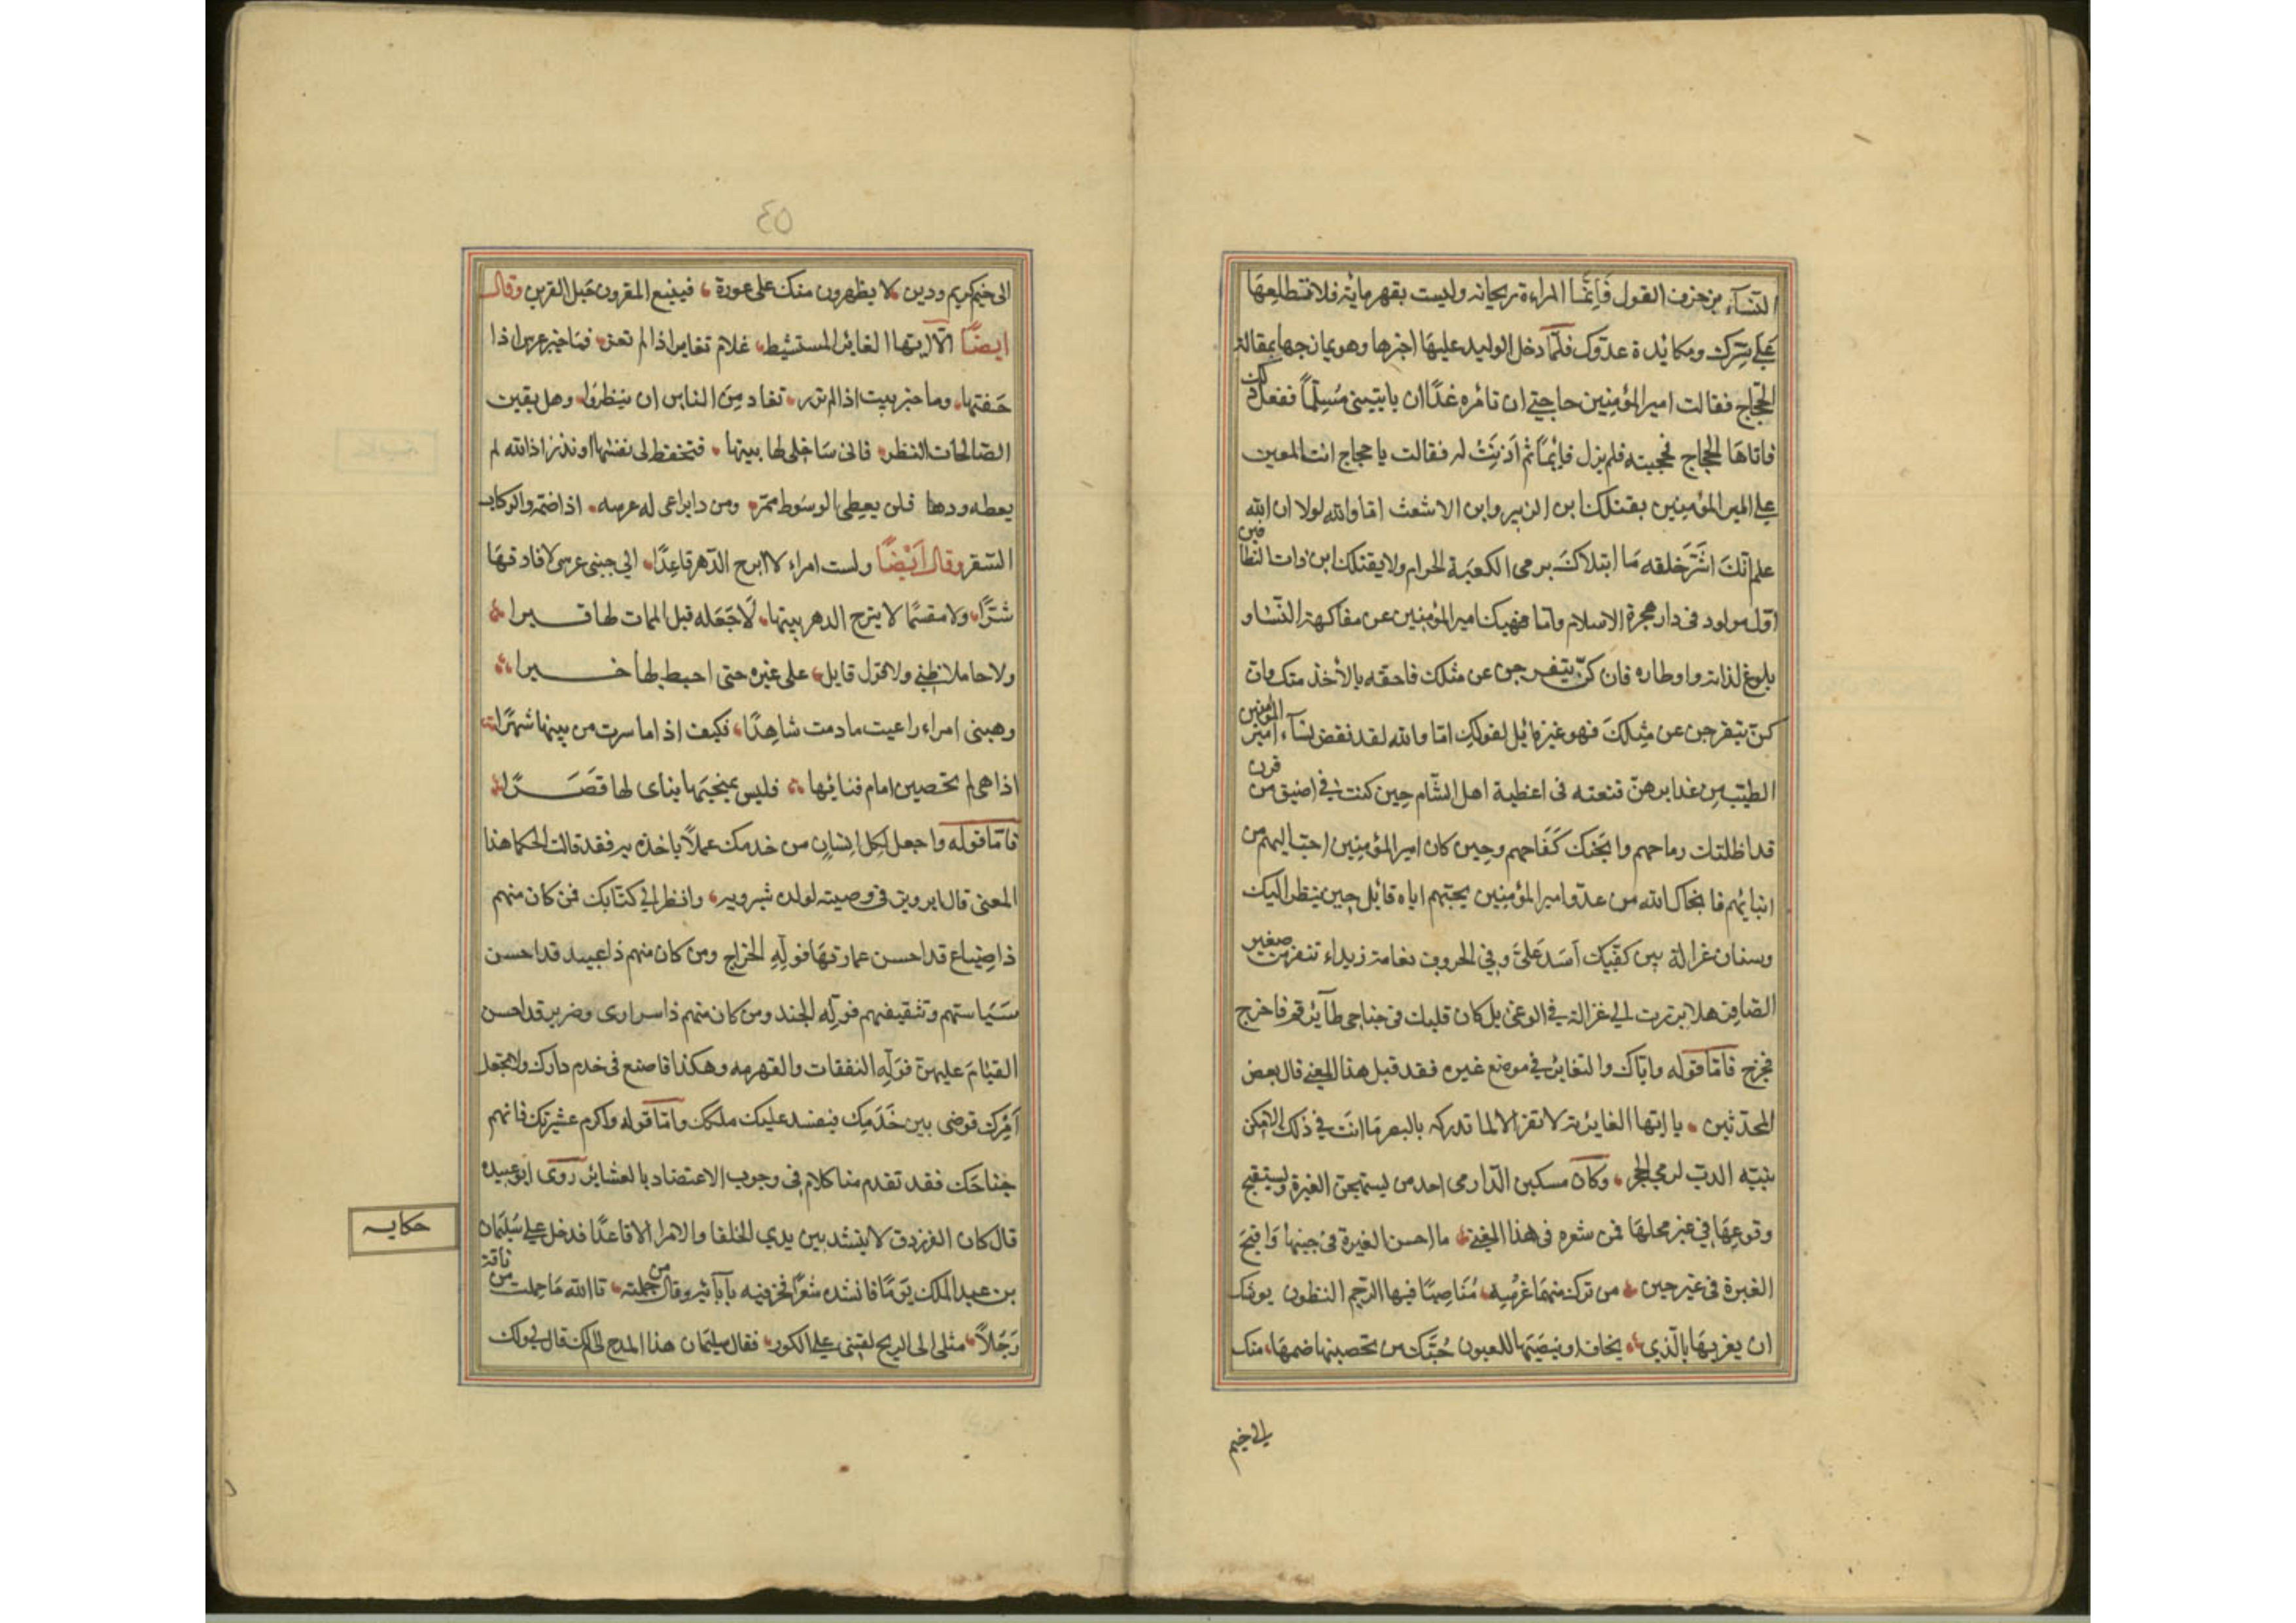 النسآء بزخرف القول فانّما المراءة ريحانه وليست بقهرمانة فلا تطلعهَا
على سِرّك ومكائدة عدوّك فلمّا دخل الوليد عليهَا اخبرها وهو يمازحها بمقالة
الحجّاج فقالت امير المؤمنين حاجتي ان تأمره غدًا ان ياتيني مُسلّمًا ففعل ذلك
فاتاهَا الحجاج فحجبته فلم يزل قايمًا ثم اَذِنَتْ له فقالت يا حجاج انت الممتن
على امير المؤمنين بقتلك ابن الزبير وابن الاشعث امَا والله لولا ان الله
علم انّكَ اشَرّ خلقه مَا ابتلاكَ برمى الكعبَة الحرام ولا بقتلك ابن ذات النطاقين
اوّل مولود فى دار هجرة الاسلام وامّا نهيك امير المؤمنين عن مفاكهة النّسا و
بلوغ لذاته واوطاره فان كنّ يتفرجن عن مثلك فاحقه بالأخذ منك وان
كنّ يتفرجن عن مثله فهو غير قائل لقولك امّا والله لقد نقض نسآء امير المؤمنين
الطيّب من غدايرهنّ فبعته فى اعطية اهل الشّام حِين كنت في اضيق من قرن
قد اظلتك رماحهم واثخنك كفَاحهم وحِين كان امير المؤمنِين احبّ اليهم من
ابنائهم فانجاك الله من عدوّ امير المؤمنين بحبّهم اياه قاتل حين ينظر اليك
وسنان غزالة بين كتفيك اسَد عَلىَّ وفي الحروب نعامة ربداء تنفر من صفير
الصّافر هلا برزت الي غزالة في الوغى بل كان قلبك فى جناحي طآئر قم فاخرج
فخرج فامّا قوله وايّاك والتغاير في موضع غيره فقد قيل هذا المعنى قال بعض
المحدثين يا ايّها الغاير لا تغر الا لما تدركه بالبصر مَا انت في ذلك الا كمن
نبّه الدبّ لرمي الحجر وكان مسكين الدّارمى احد من يستهجن الغيرة ويستقبح
وقوعهَا في غير محلها فمن شعره فى هذا المعنى ما احسن الغيرة فى حينهَا وَاقبحَ
الغيرة فى غير حين من ترك متهمًا عرسه مُنَاصبًا فيها الرجم الظنون يوشك
ان يغريهَا بالّذي يخاف او ينصبَهَا للعيون حسْبك من تحصينها ضمهَا منك
الى خيم
٤٥
الى خيم كريم ودين لا يظهرون منك على عورة فيتبع المقرون حَبل القرين وقال
ايضًا الّا ايّها الغائر المستشيط علام تغار اذا لم تغر فمَا خير عرس اذا
خفتها وما خير بيت اذا لم يزر تغار مِنَ الناس ان ينظرُوا وهل يفتن
الصّالحات النظر فانى سَاخلى لها بيتها فتحفظ لى نفسها او تذر اذ الله لم
يعطه ودها فلن يعطى الود سَوط ممر ومن ذا يراعى له عرسه اذا ضمّه والركاب
السّفر وقال اَيْضًا ولست امراء لا ابرح الدّهر قاعِدًا الي جنب عرسى لا افارقهَا
شبرًا ولا مقسمًا لا يبرح الدهر بيتها لَاجعَله قبل الممات لها قبرا
ولا حاملا ظني ولا قول قايل على غيره حتى احيط بها خبرا
وهبنى امراء راعيت ما دمت شاهِدًا فكيف اذا ما سرت من بيتها شهرًا
اذا هى لم تحصن امام فنائها فليس بمنجيَها بناى لها قَصَرًا
فامّا قوله واجعل لكل انسان من خدمك عملًا ياخذه به فقد قالت الحكما هذا
المعنى قال ابرويز فى وصيته لولده شيرويه وانظر الي كتّابك فمن كان منهم
ذا ضِياع قد احسن عمارتهَا فولّهِ الخراج ومن كان منهم ذا عبيد قد احسن
سيَاستهم وتثقيفهم فولّه الجند ومن كان منهم ذا سرارى وضراير قد احسن
القيَام عليهنّ فولّهِ النفقات والقهرمه وهكذا فاصنع فى خدم دارك ولا تجعل
اَمْرك فوضى بين خَدَمِك فيفسد عليك ملكك وامّا قوله واكرم عشيرتك فانهم
جناحَك فقد تقدم منا كلام فى وجوب الاعتضاد بالعشاير روى ابو عبيده
قال كان الفرزدق لا ينشد بين يدي الخلفا والامرا الا قاعدًا فدخل على سُليمَان
بن عبد الملك يَومًا فانشده شعرًا فخر فيه بآبآئه وقال من جملته تا الله مَا حملت من ناقة
رَجُلًا مثلى اذا الريح لفتنى على الكور فقال سليمَان هذا المدح لى ام لك قال لي ولك
حكايه